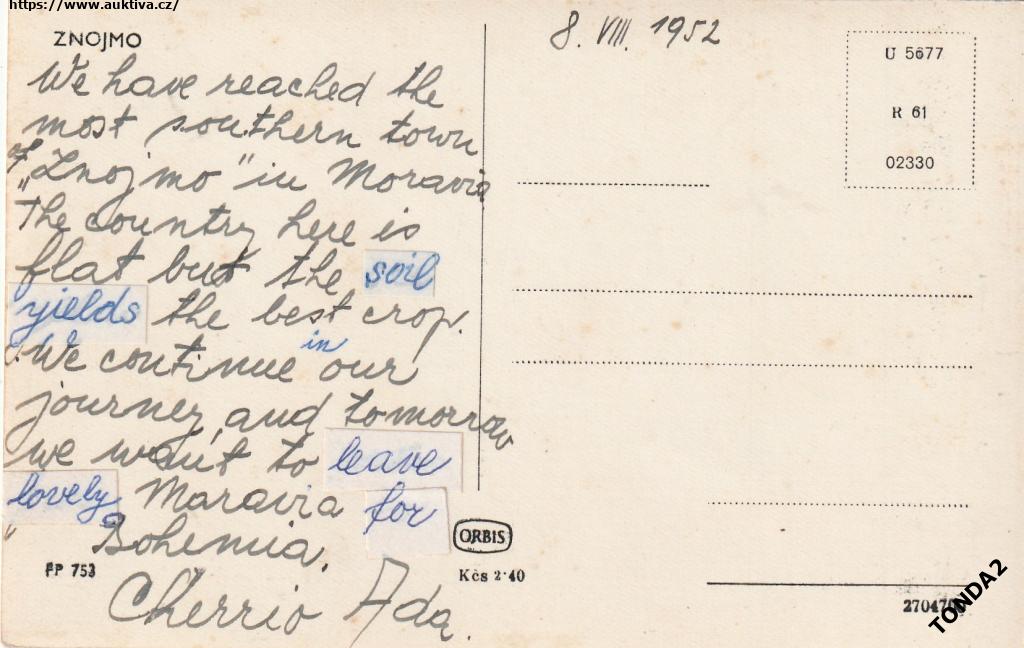 https://www.auktiva.cz/
ZNOJMO
We have reached the
most southern town
of „Znojmo" in Moravia
The country here is
flat but the soil
yields the best crop.
We continue in our
journey, and tomorrow
we want to leave
lovely Maravia for
Bohemia.
Cherrio Ada.
FP 753
8. VIII. 1952
U 5677
R 61
02330
ORBIS
Kčs 2·40
TONDA2